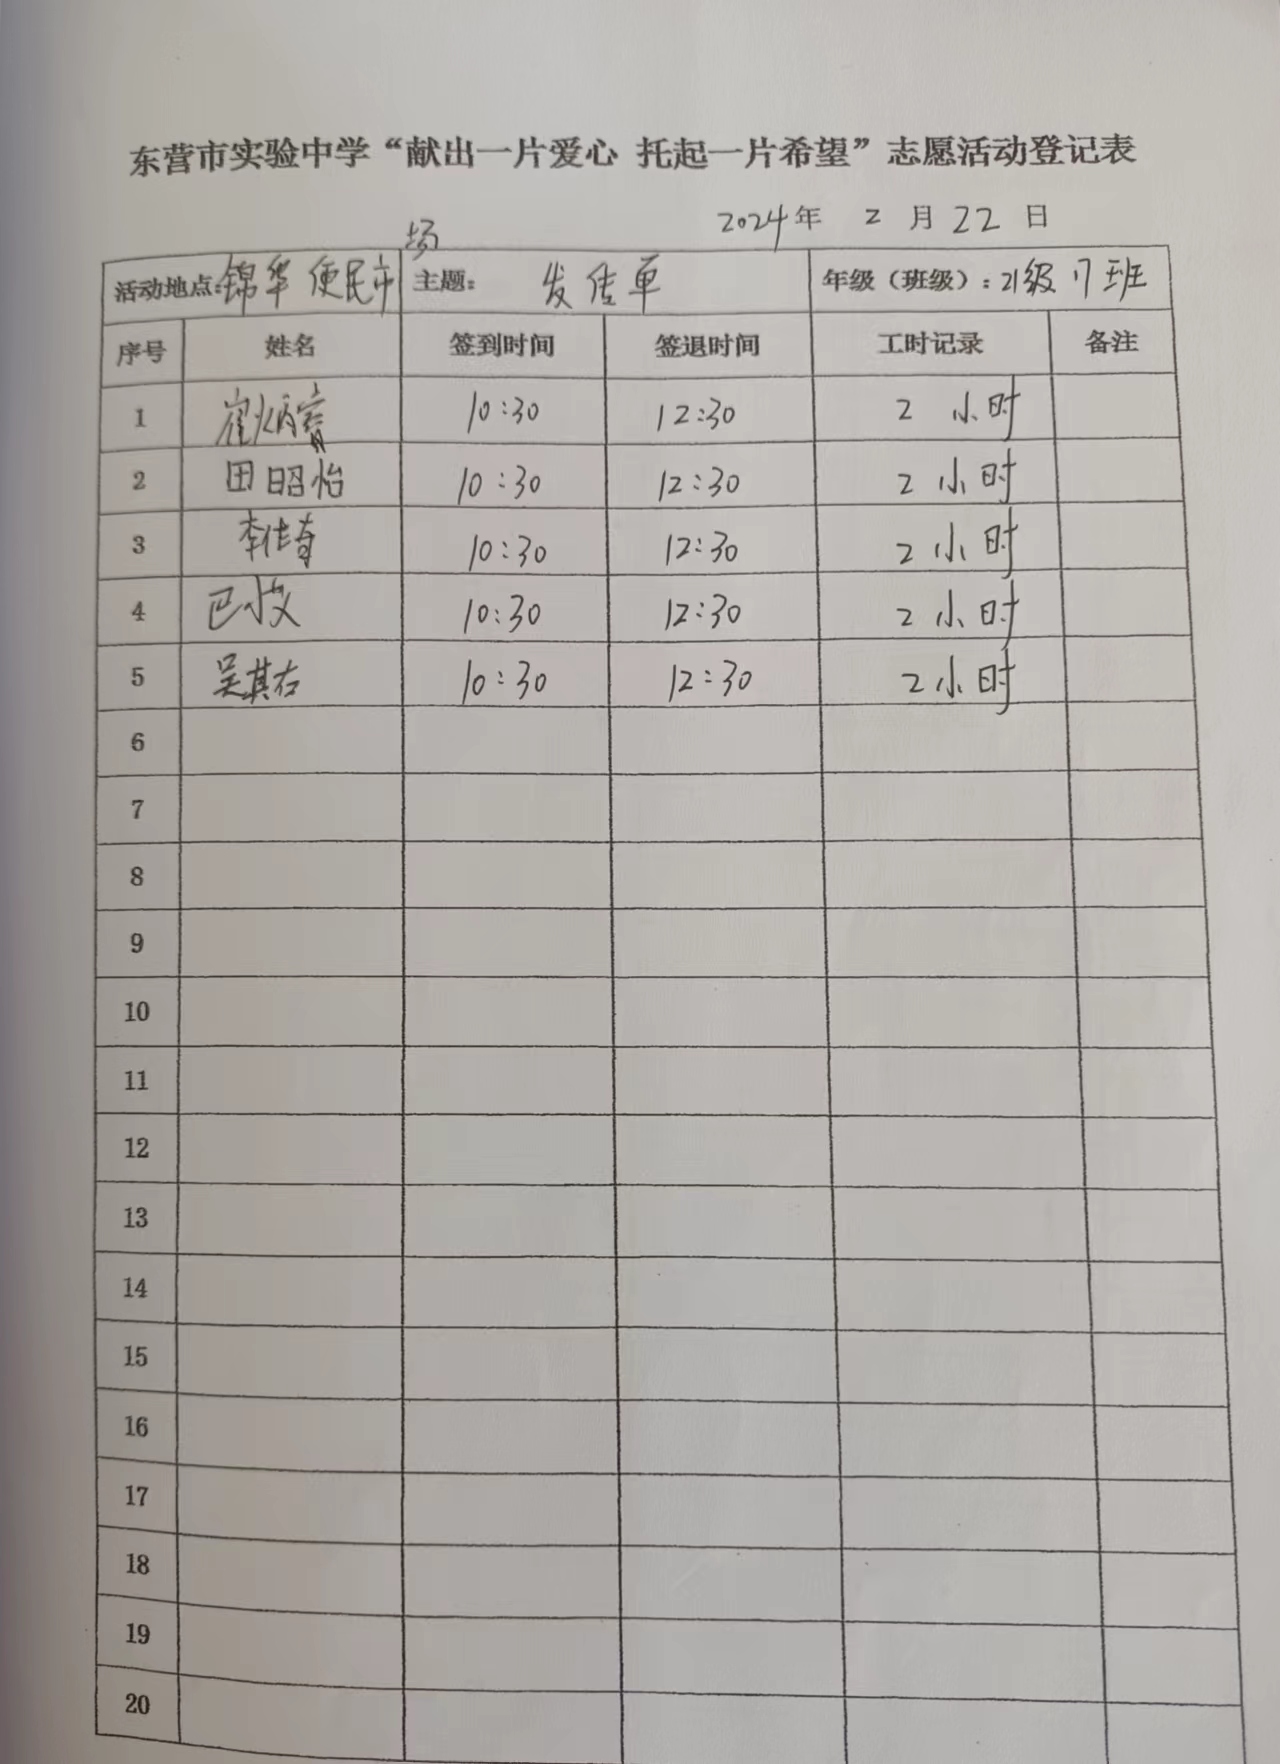 东营市实验中学“献出一片爱心 托起一片希望”志愿活动登记表
2024年 2 月 22 日
活动地点：锦华便民市场 主题： 发传单 年级（班级）：21级17班
序号 姓名 签到时间 签退时间 工时记录 备注
1 崔炳睿 10:30 12:30 2 小时
2 田昭怡 10:30 12:30 2 小时
3 李佳奇 10:30 12:30 2 小时
4 10:30 12:30 2 小时
5 吴其右 10:30 12:30 2小时
6
7
8
9
10
11
12
13
14
15
16
17
18
19
20